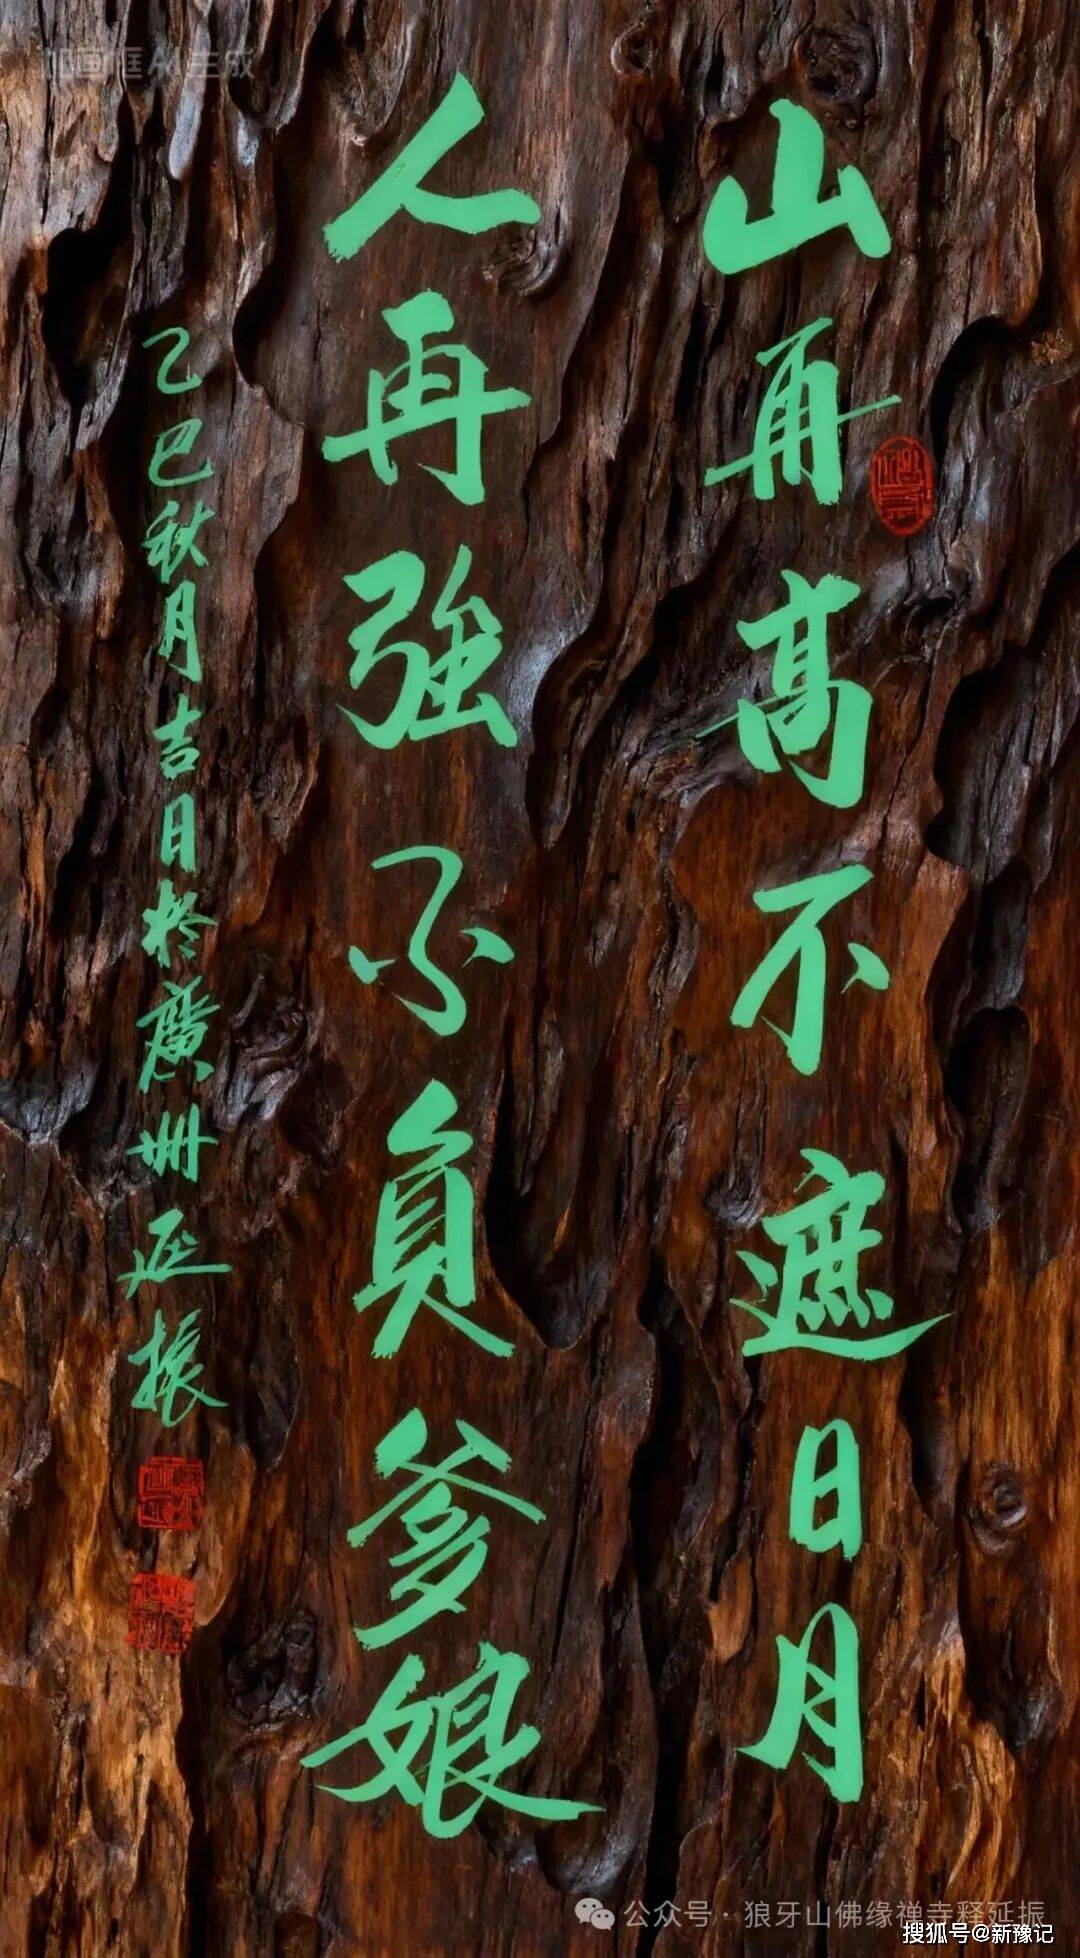 山再高不遮日月
人再強不負爹娘
乙巳秋月吉日於廣州延振
公众号·狼牙山佛缘禅寺释延振
搜狐号@新豫记